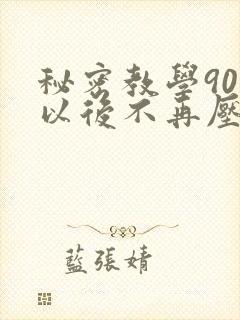 秘密教學90
以後不再壓
藍張婧